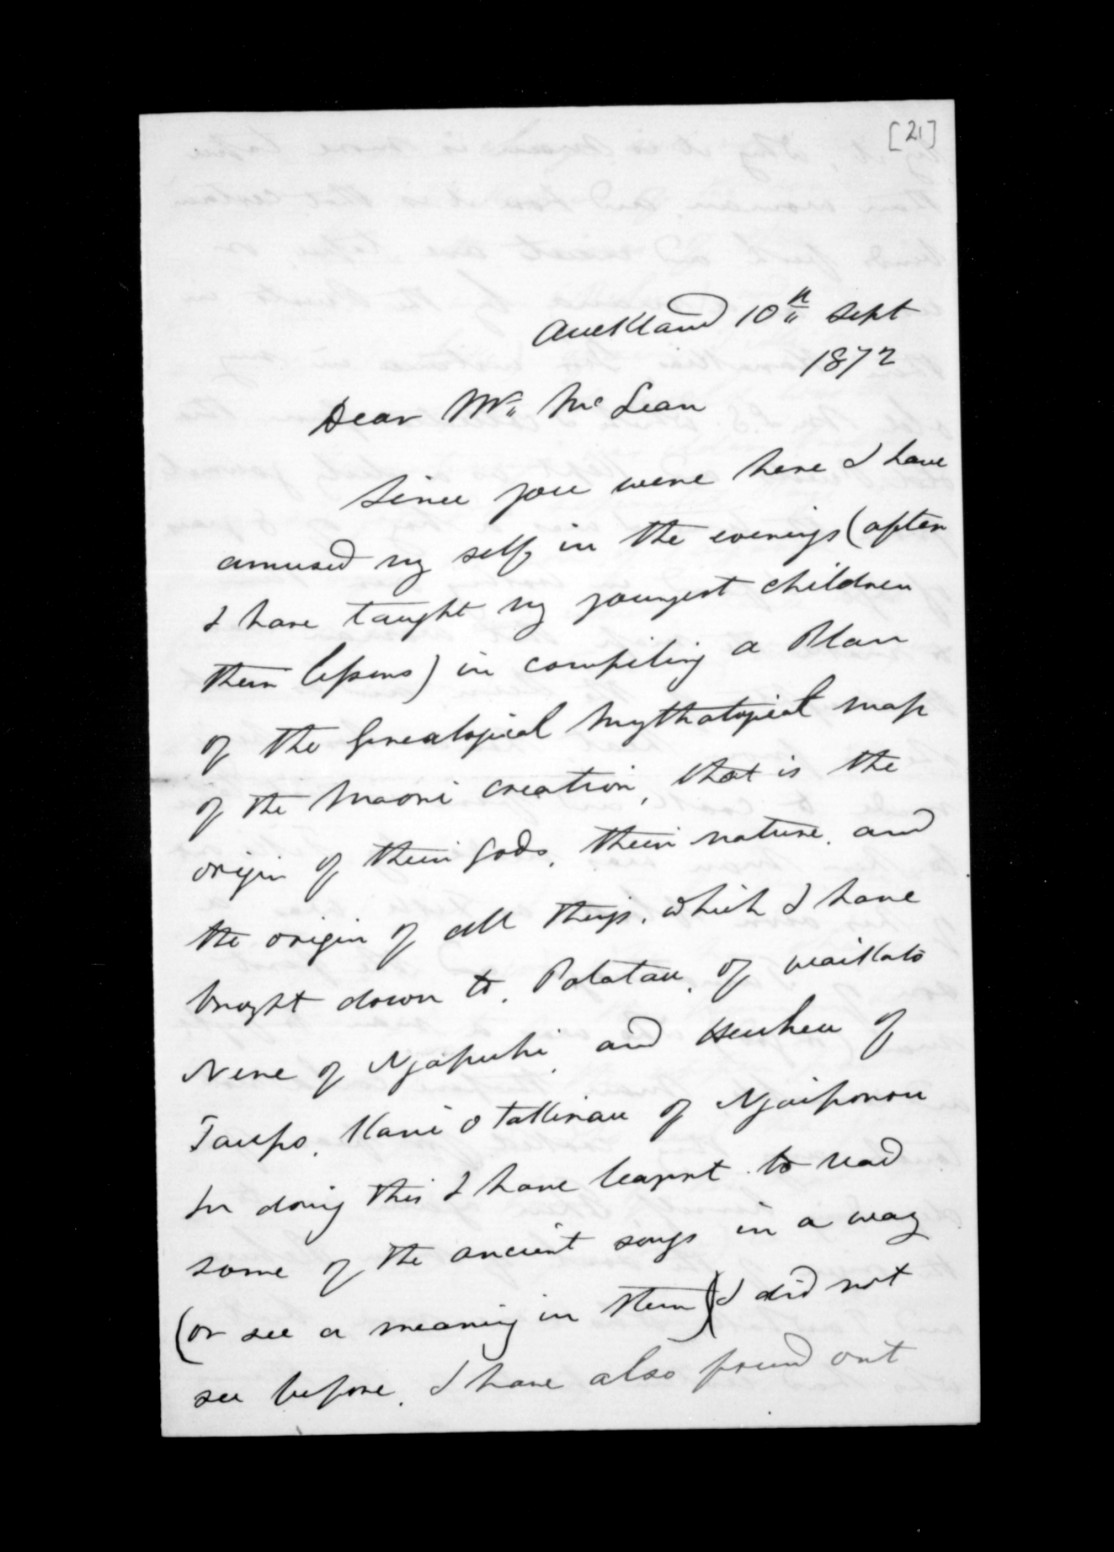 [21]
Auckland 10th Sept
1872
Dear Mr McLean
Since you were here I have
amused my self, in the evenings (after
I have taught my youngest children
their lessons) in compiling a Plan
of the Genealogical Mythological map
of the Maori creation, that is the
origin of their gods, their nature, and
the origin of all things, which I have
brought down to, Potatau, of Waikato
Nene of Ngapuhi, and Heuheu of
Taupo, Kani o takirau of Ngaiporou
In doing this I have learnt to read
some of the ancient songs in a way
(or see a meaning in them) I did not
see before. I have also found out